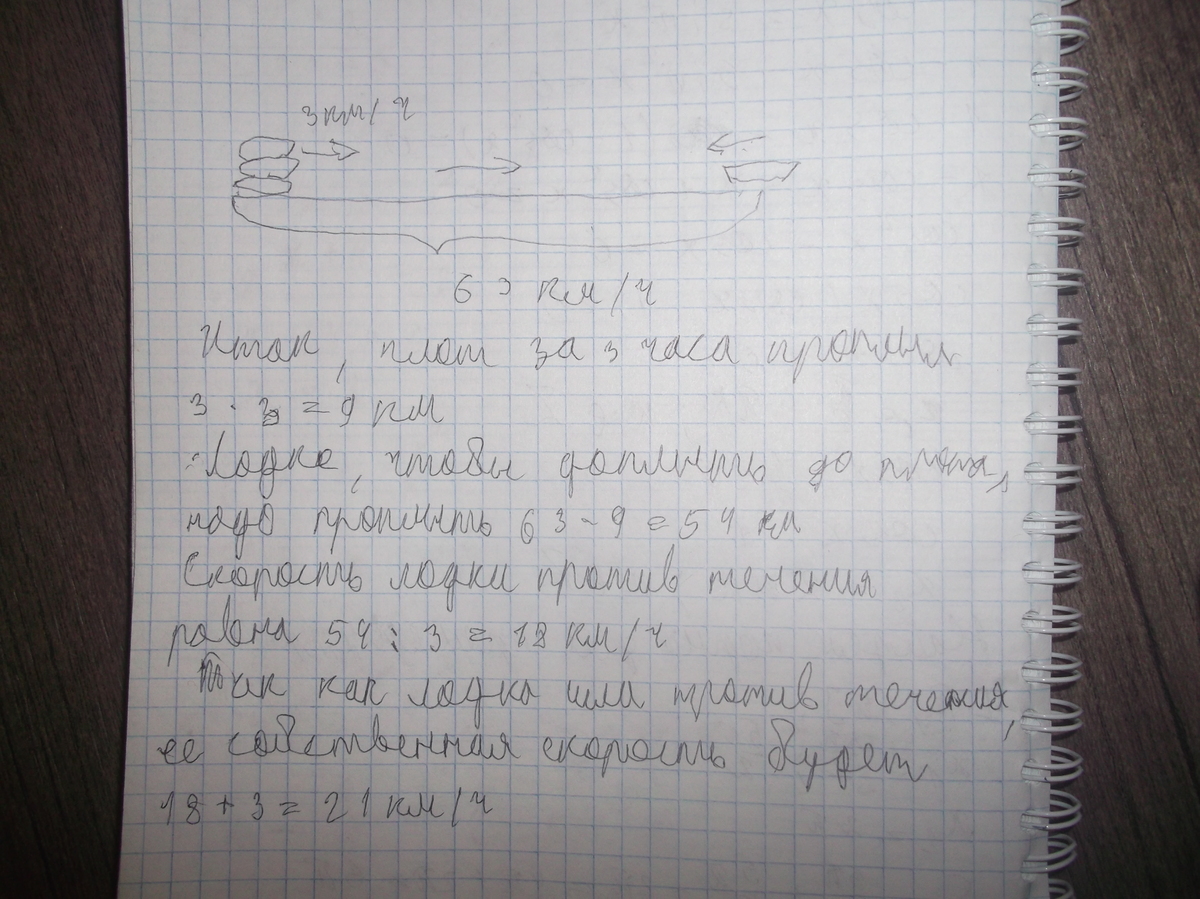 3 км/ч
63 км/ч
Итак, плот за 3 часа проплыл
3 · 3 = 9 км
Лодке, чтобы доплыть до плота,
надо проплыть 63 - 9 = 54 км
Скорость лодки против течения
равна 54 : 3 = 18 км/ч
Так как лодка шла против течения,
ее собственная скорость будет
18 + 3 = 21 км/ч